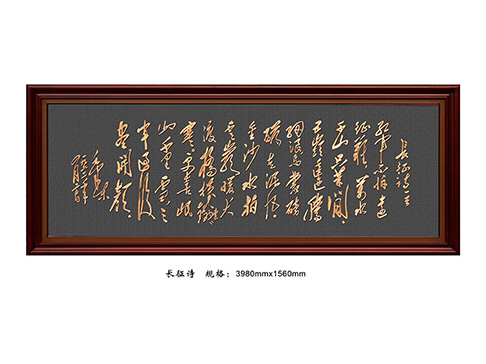 长征诗一首
红军不怕远
征难万水
千山只等闲
五岭逶迤腾
细浪乌蒙磅
礴走泥丸
金沙水拍
云崖暖大
渡桥横铁索
寒更喜岷
山千里雪三
军过后
尽开颜
毛泽东
长征诗 规格：3980mmx1560mm